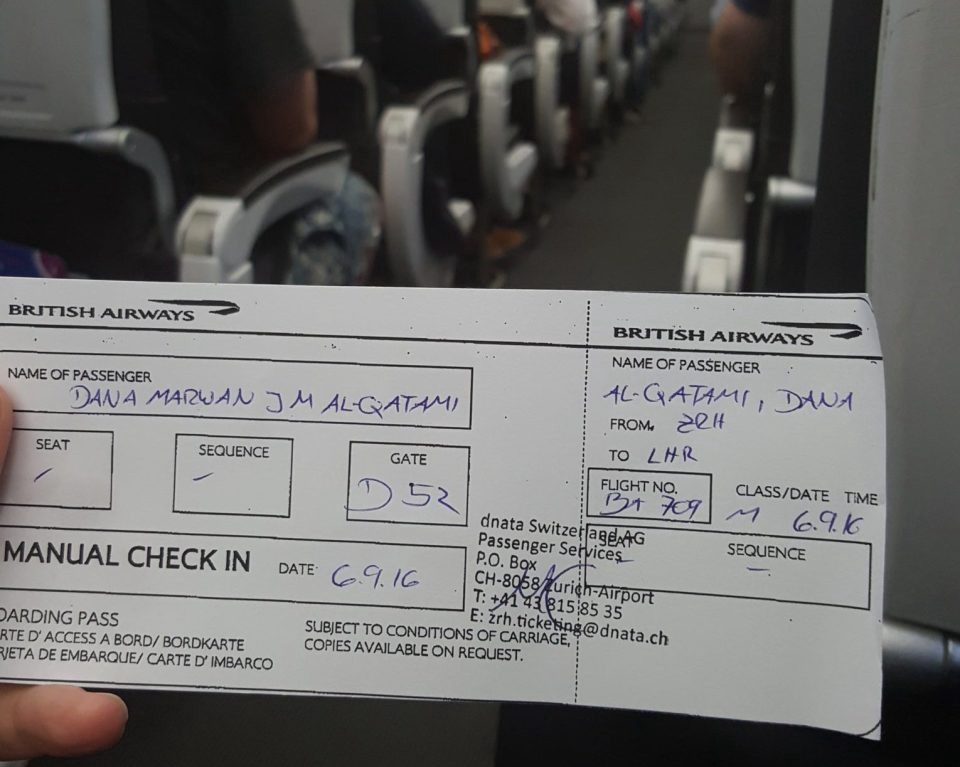 BRITISH AIRWAYS
NAME OF PASSENGER
DANA MARWAN J M AL-QATAMI
SEAT
/
SEQUENCE
-
GATE
D 52
MANUAL CHECK IN
DATE 6.9.16
OARDING PASS
RTE D' ACCESS A BORD/ BORDKARTE
RJETA DE EMBARQUE/ CARTE D' IMBARCO
SUBJECT TO CONDITIONS OF CARRIAGE,
COPIES AVAILABLE ON REQUEST.
dnata Switzerland AG
Passenger Services
P.O. Box
CH-8058 Zurich-Airport
T: +41 43 815 85 35
E: zrh.ticketing@dnata.ch
BRITISH AIRWAYS
NAME OF PASSENGER
AL-QATAMI, DANA
FROM ZRH
TO LHR
FLIGHT NO.
BA 709
CLASS/DATE TIME
M 6.9.16
SEAT
SEQUENCE
-